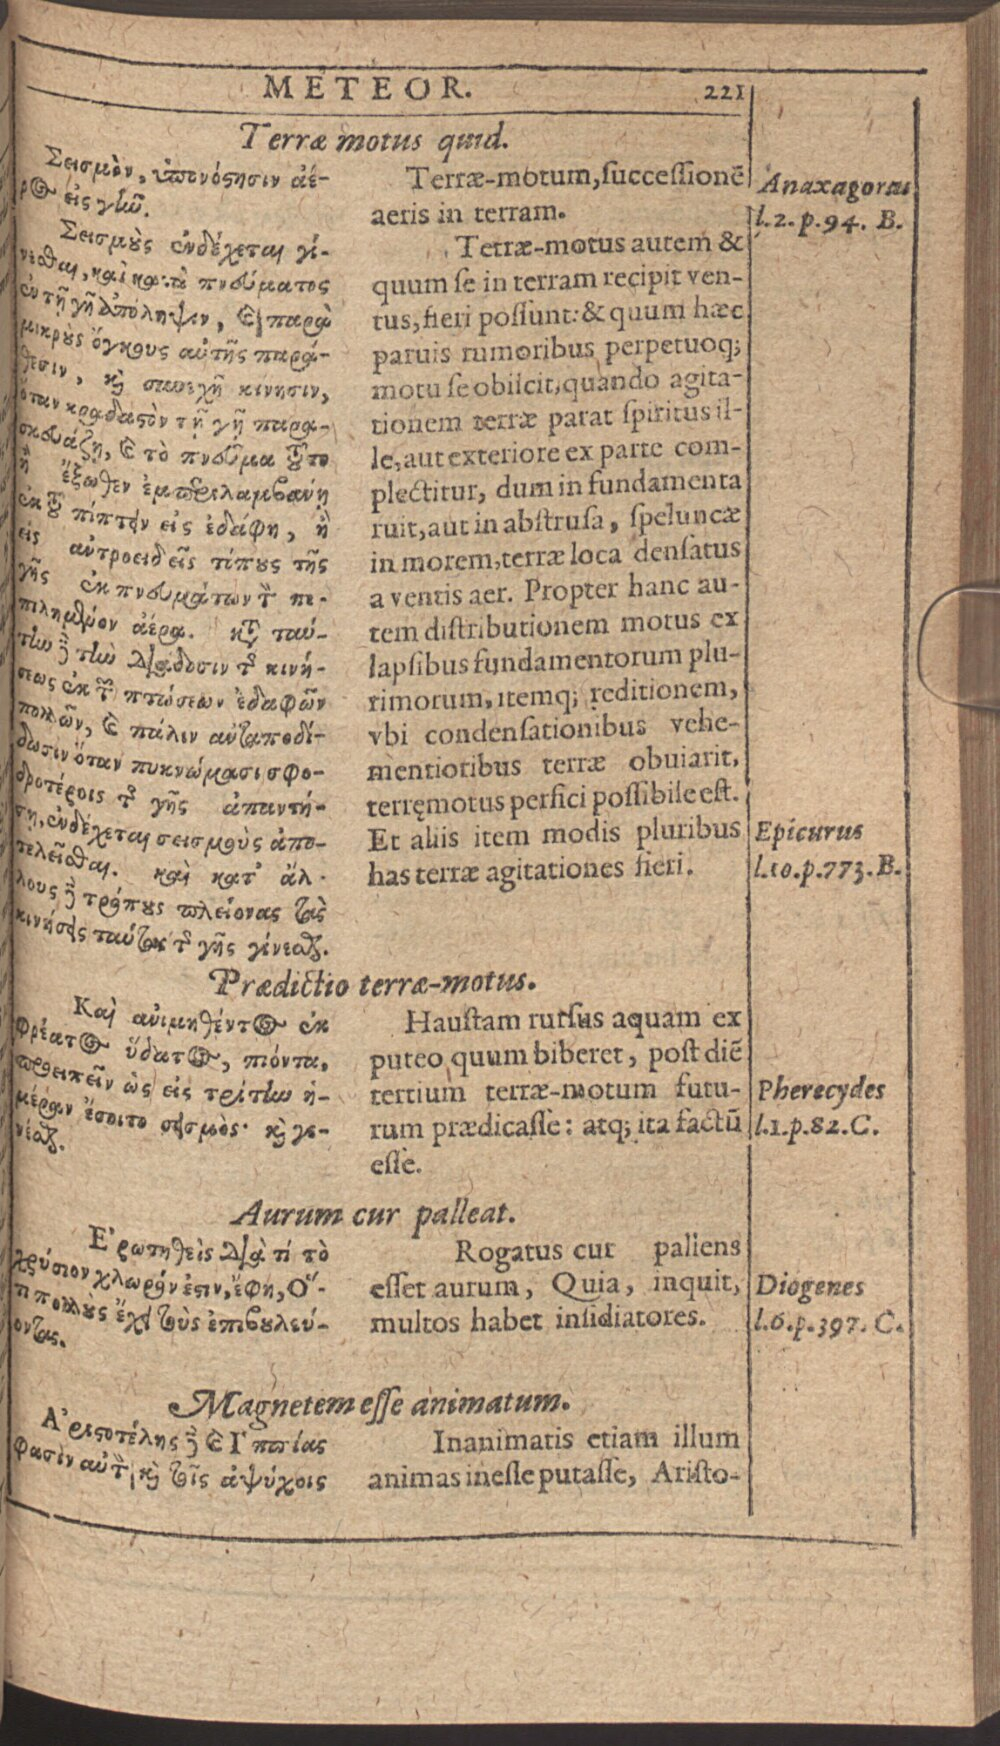 METEOR. 221
Terræ motus quid.
Σεισμὸν, ὑπονόςησιν ἀέ-
ρος εἰς γῆν.
Σεισμοὺς ἐνδέχεται γί-
νεσθαι, καὶ κατὰ πνεύματος
ἐν τῇ γῇ ἀπόληψιν, καὶ παρὰ
μικροὺς ὄγκους αὐτῆς παρά-
θεσιν, καὶ συνεχῆ κίνησιν,
ὅταν κραδαςὸν τῇ γῇ παρα-
σκευάζῃ, καὶ τὸ πνεῦμα τοῦτο
ἢ ἔξωθεν ἐμπεριλαμβανῃ
ἐκ τοῦ πίπτειν εἰς ἐδάφη, ἢ
εἰς αὐτροειδεῖς τόπους τῆς
γῆς ἐκπνευμάτων τὸν πε-
πιλημένον ἀέρα. κατὰ ταύ-
την δὲ τὴν διάδοσιν τῆς κινή-
σεως ἐκ τῶν πτώσεων ἐδαφῶν
πολλῶν, καὶ πάλιν ἀνταποδί-
δωσιν ὅταν πυκνώμασι σφο-
δροτέροις τῆς γῆς ἀπαντή-
σῃ, ἐνδέχεται σεισμοὺς ἀπο-
τελεῖσθαι. καὶ κατ' ἄλ-
λους δὲ τρόπους πλείονας τὰς
κινήσεις ταύτας τῆς γῆς γίνεσθαι.
Terræ-motum, successionē
aeris in terram.
Anaxagoras
l.2.p.94. B.
Terræ-motus autem &
quum se in terram recipit ven-
tus, fieri possunt: & quum hæc
paruis rumoribus perpetuoq;
motu se obiicit, quando agita-
tionem terræ parat spiritus il-
le, aut exteriore ex parte com-
plectitur, dum in fundamenta
ruit, aut in abstrusa, speluncæ
in morem, terræ loca densatus
a ventis aer. Propter hanc au-
tem distributionem motus ex
lapsibus fundamentorum plu-
rimorum, itemq; reditionem,
vbi condensationibus vehe-
mentioribus terræ obuiarit,
terręmotus perfici possibile est.
Et aliis item modis pluribus
has terræ agitationes fieri.
Epicurus
l.10.p.773.B.
Prædictio terræ-motus.
Καὶ ἀνιμηθέντος ἐκ
φρέατος ὕδατος, πιόντα,
προειπεῖν ὡς εἰς τρίτην ἡ-
μέραν ἔσοιτο σεισμὸς· καὶ γε-
νέσθαι.
Haustam rursus aquam ex
puteo quum biberet, post diē
tertium terræ-motum futu-
rum prædicasse: atq; ita factū
esse.
Pherecydes
l.1.p.82.C.
Aurum cur palleat.
Ἐρωτηθεὶς διὰ τί τὸ
χρύσιον χλωρόν ἐςιν, ἔφη, Ὅ-
τι πολλοὺς ἔχει τοὺς ἐπιβουλεύ-
οντας.
Rogatus cur pallens
esset aurum, Quia, inquit,
multos habet insidiatores.
Diogenes
l.6.p.397. C.
Magnetem esse animatum.
Ἀριςοτέλης δὲ καὶ Ἱππίας
φασὶν αὐτὸν καὶ τοῖς ἀψύχοις
Inanimatis etiam illum
animas inesse putasse, Aristo-